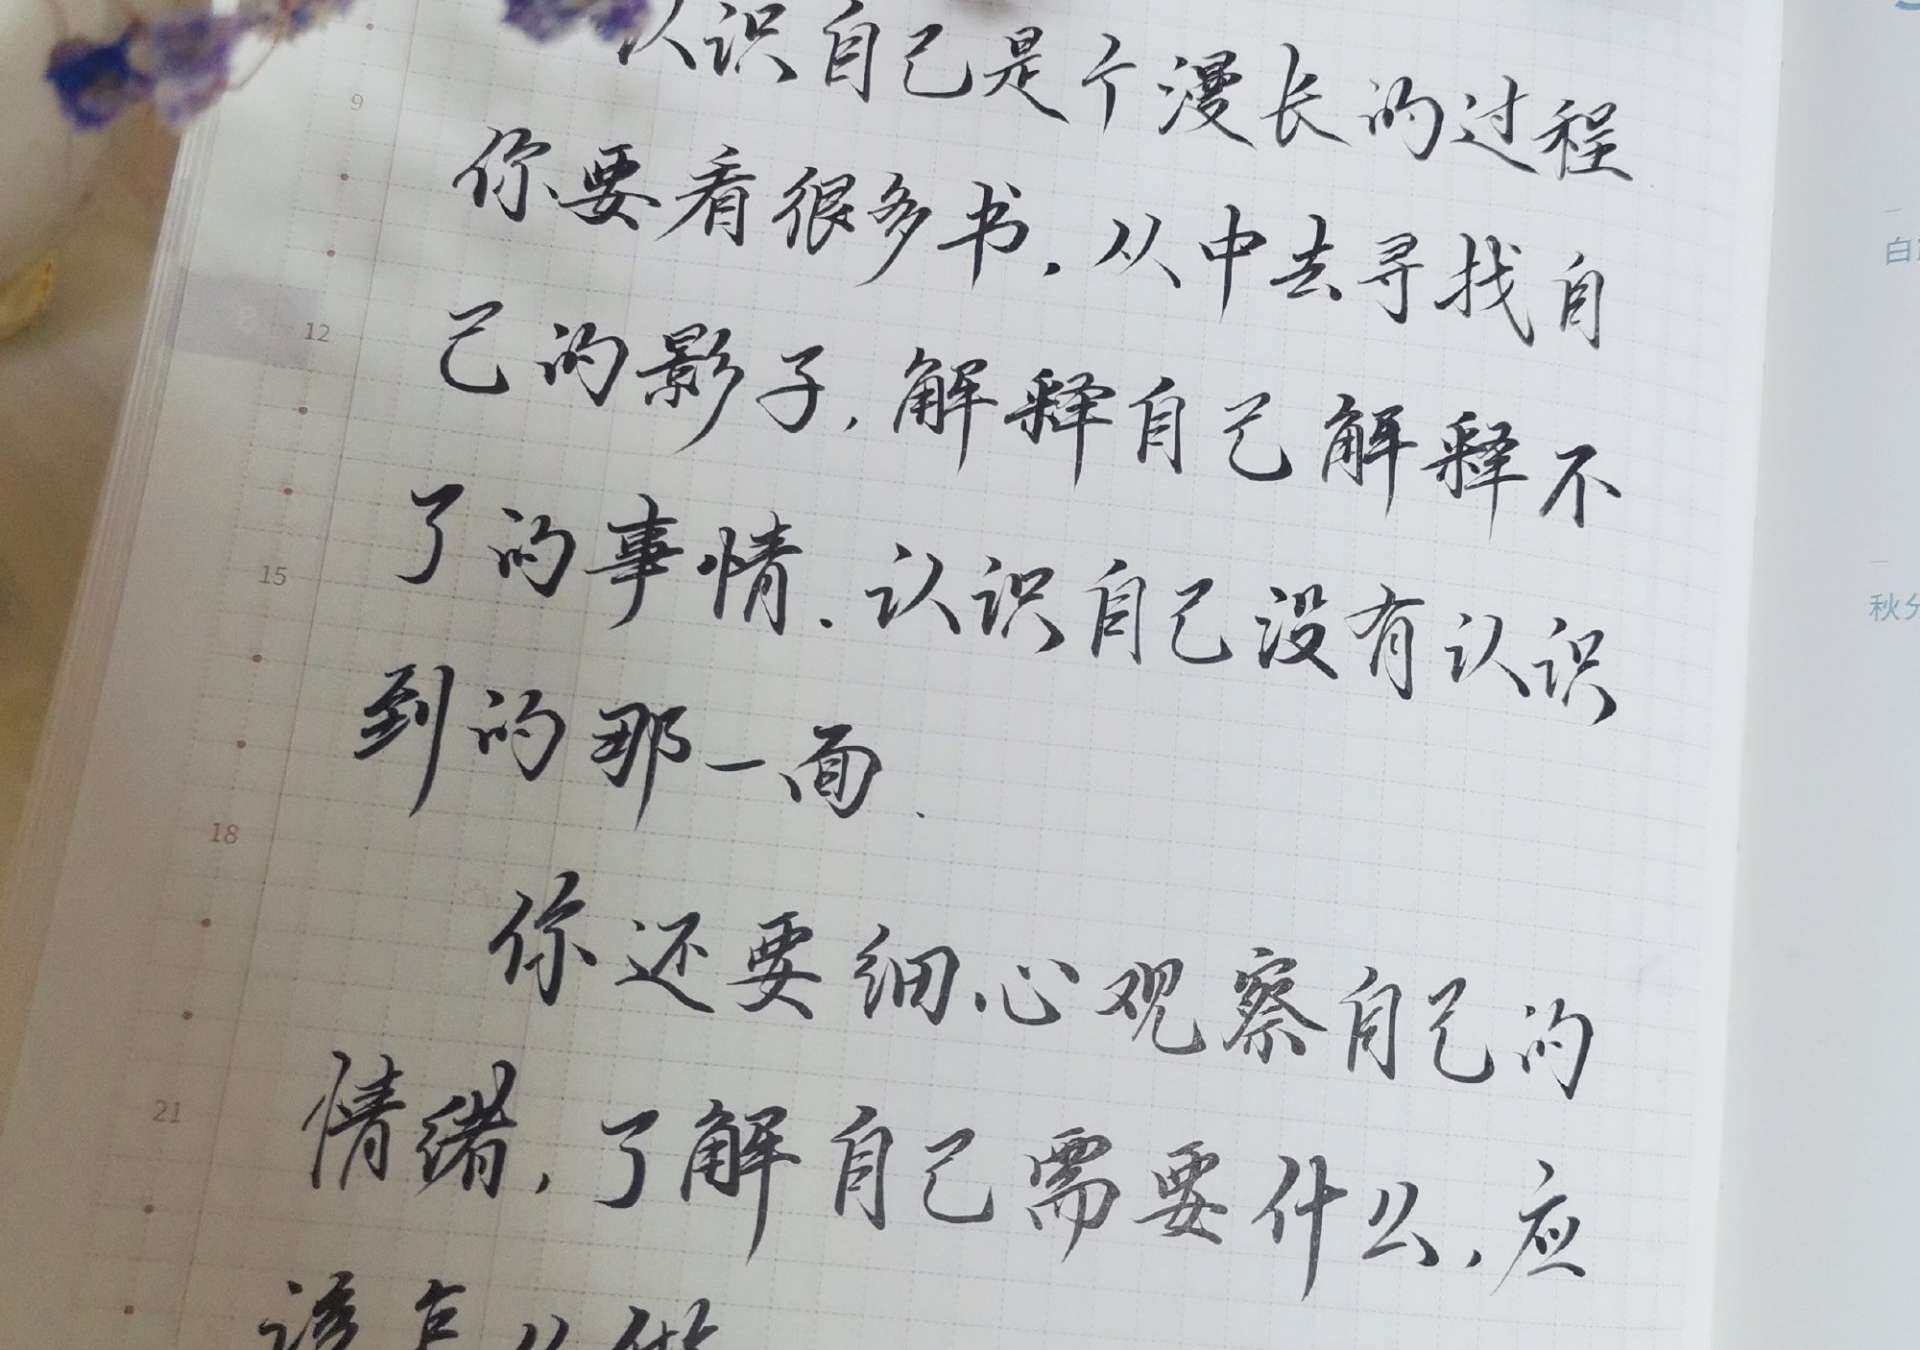 认识自己是个漫长的过程
你要看很多书,从中去寻找自
己的影子,解释自己解释不
了的事情.认识自己没有认识
到的那一面.
你还要细心观察自己的
情绪,了解自己需要什么,应
该怎么做
9
12
15
18
21
白
秋分